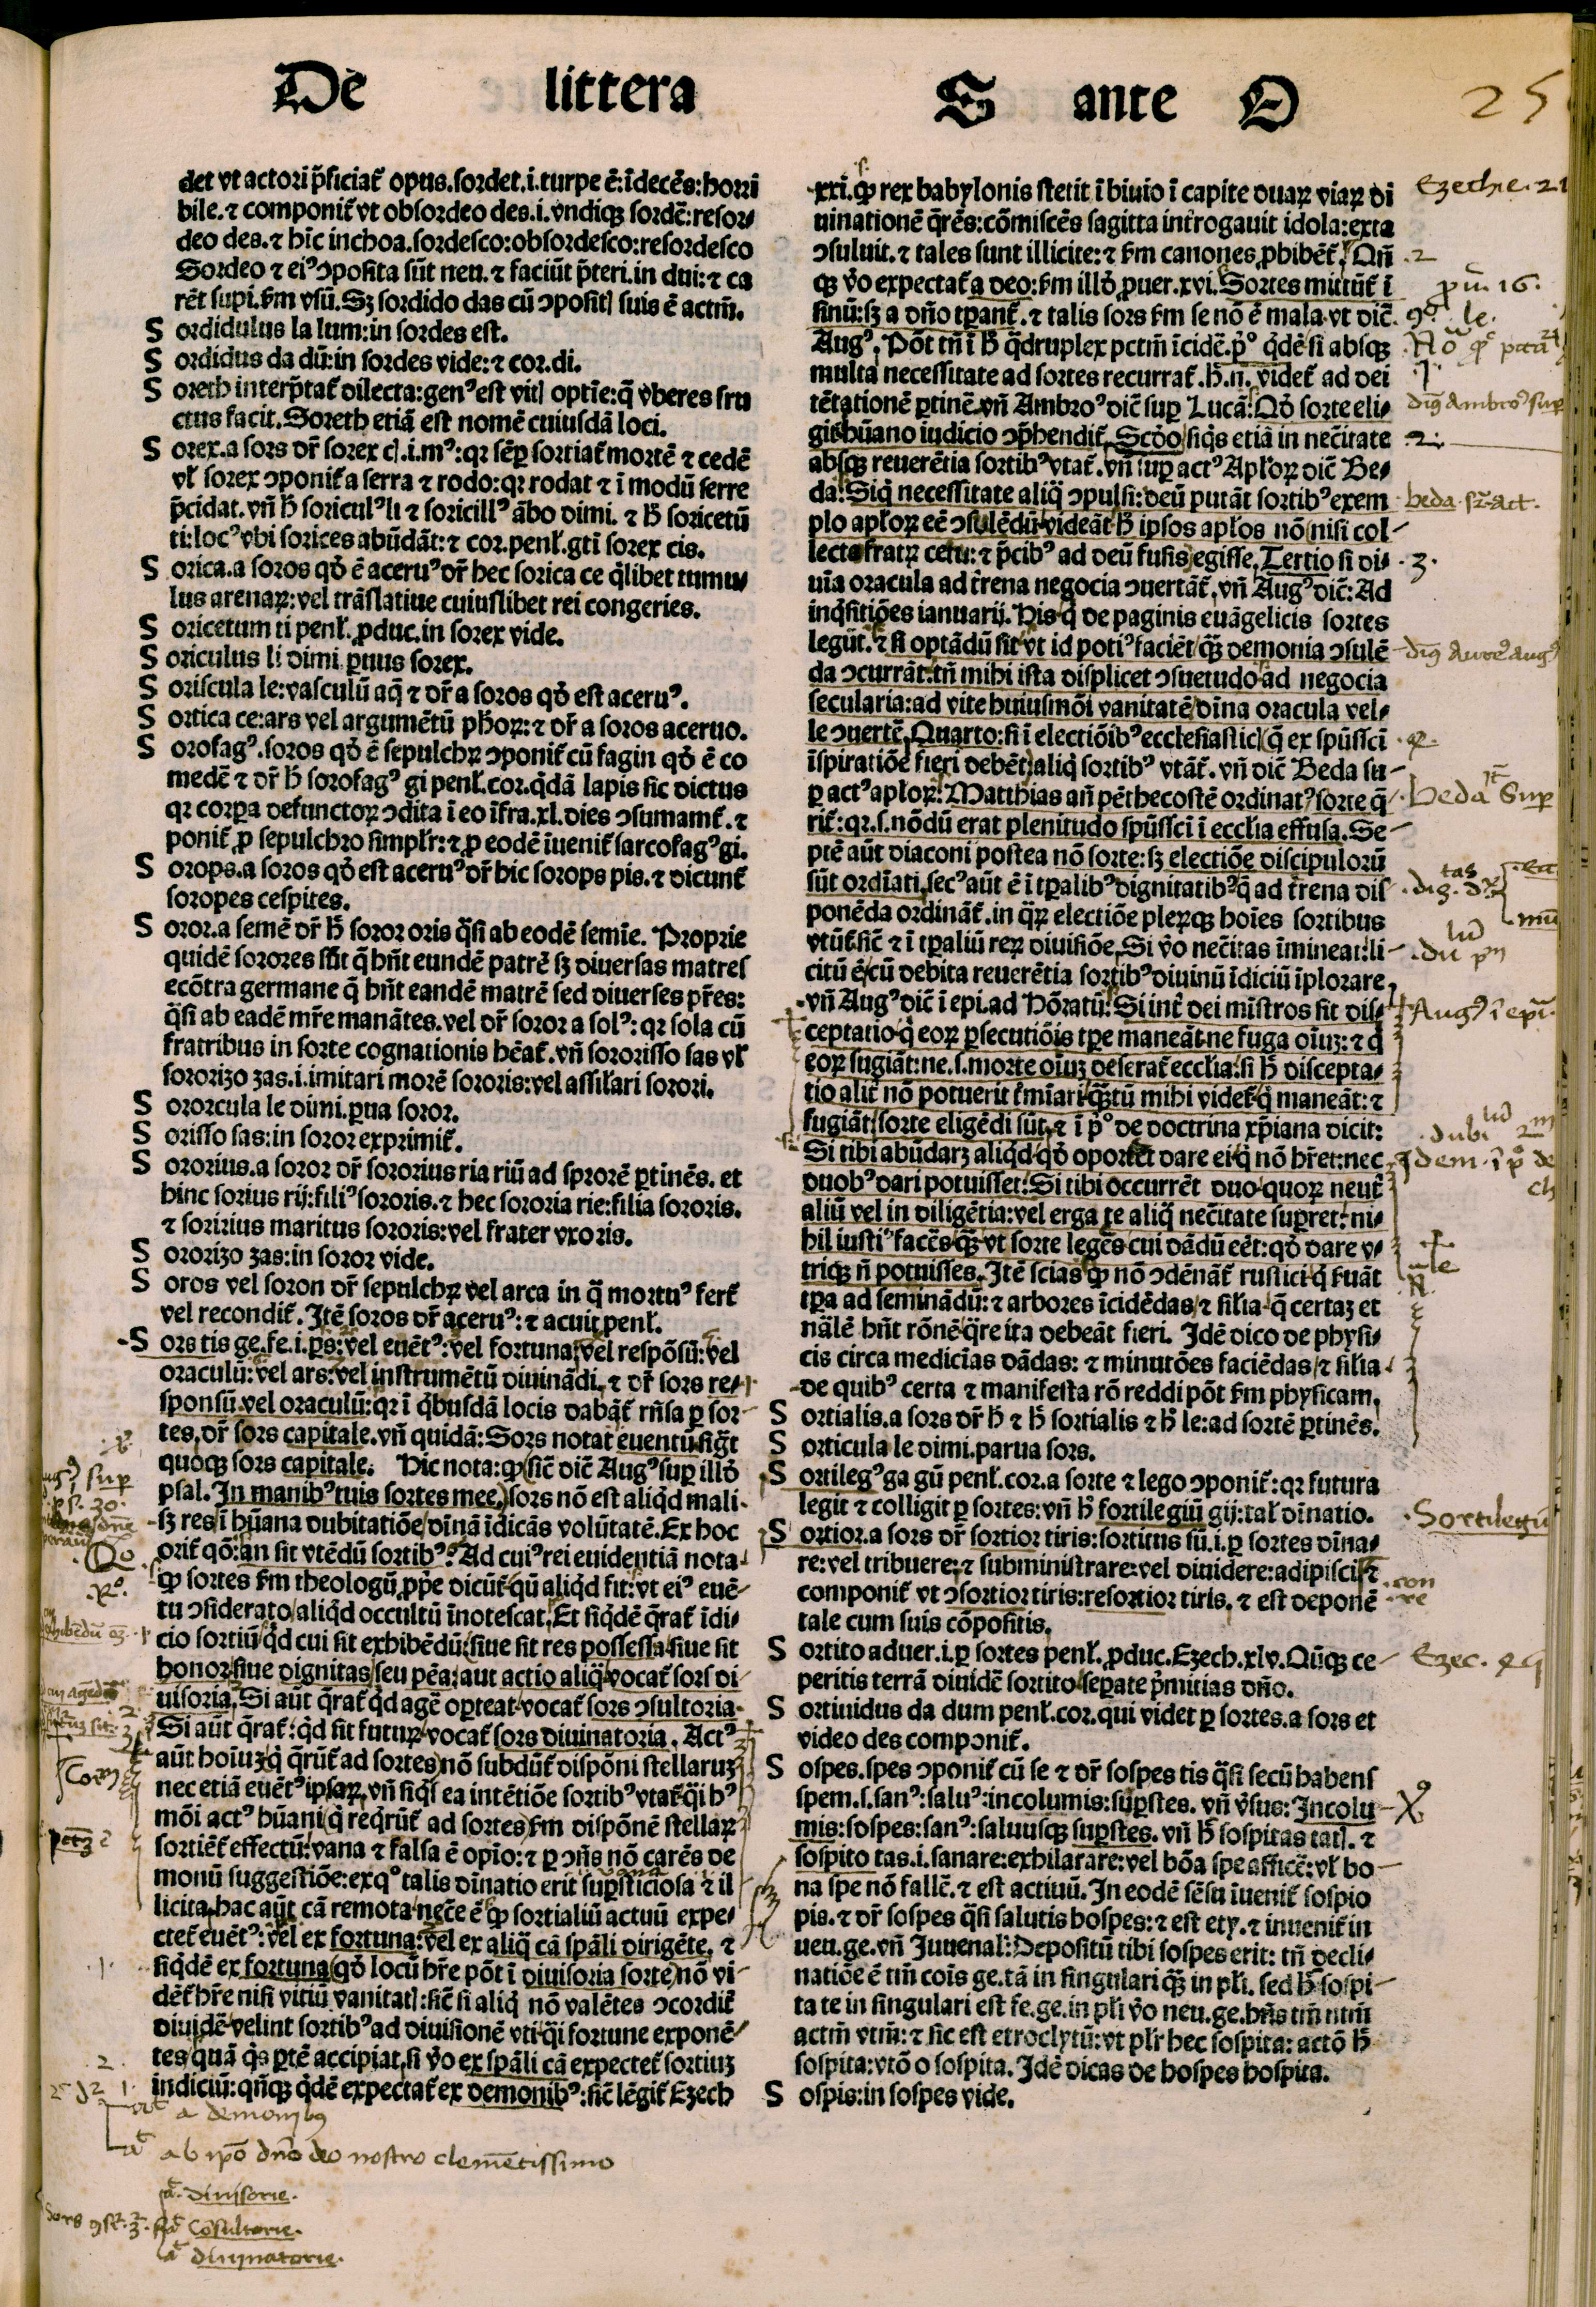 De littera S ante O
25
det vt actori p̄ficiat̉ opus.sordet.i.turpe ē:īdecēs:horri
bile.⁊ componit̉ vt obsordeo des.i.vndiqꝫ sordē:resor-
deo des.⁊ hīc inchoa.sordesco:obsordesco:resordesco
Sordeo ⁊ ei⁹ ↄposita sūt neu.⁊ faciūt p̄teri.in dui:⁊ ca
rēt supi.ẜm vsū.Sꝫ sordido das cū ↄposit) suis ē actīn.
S ordidulus la lum:in sordes est.
S ordidus da dū:in sordes vide:⁊ cor.di.
S oreth interp̄tat̉ dilecta:gen⁹ est vit) optīe:q̄ vberes fru
ctus facit.Soreth etiā est nomē cuiusdā loci.
S orex.a sors dr̄ sorex c).i.m⁹:qꝛ sēꝑ sortiat̉ mortē ⁊ cedē
vl̉ sorex ↄponit̉ a serra ⁊ rodo:qꝛ rodat ⁊ ī modū serre
p̄cidat.vn̄ h̄ soricul⁹ li ⁊ soricill⁹ ābo dimi.⁊ h̄ soricetū
ti:loc⁹ vbi sorices abūdāt:⁊ cor.penl̉.gti sorex cis.
S orica.a soros qd̉ ē aceru⁹ dr̄ hec sorica ce q̉libet tumu-
lus arenaꝝ:vel trāslatiue cuiuslibet rei congeries.
S oricetum ti penl̉.ꝓduc.in sorex vide.
S oriculus li dimi.ꝑuus sorex.
S oriscula le:vasculū aq̄ ⁊ dr̄ a soros qd̉ est aceru⁹.
S ortica ce:ars vel argumētū ph̄oꝝ:⁊ dr̄ a soros aceruo.
S orofag⁹.soros qd̉ ē sepulchꝝ ↄponit̉ cū fagin qd̉ ē co
medē ⁊ dr̄ h̄ sorofag⁹ gi penl̉.cor.q̉dā lapis sic dictus
qꝛ corꝑa defunctoꝝ ↄdita ī eo īfra.xl.dies ↄsumamt̉.⁊
ponit̉ ꝓ sepulchro simpl̉r:⁊ ꝓ eodē īuenit̉ sarcofag⁹ gi.
S orops.a soros qd̉ est aceru⁹ dr̄ hic sorops pis.⁊ dicunt̉
soropes cespites.
S oror.a semē dr̄ h̄ soror oris q̄si ab eodē semīe. Proprie
quidē sorores sūt q̄ hn̄t eundē patrē sꝫ diuersas matres
ecōtra germane q̄ hn̄t eandē matrē sed diuerses pr̄es:
q̄si ab eadē mr̄e manātes.vel dr̄ soror a sol⁹:qꝛ sola cū
fratribus in sorte cognationis hēat̉.vn̄ sororisso sas vl̉
sororizo zas.i.imitari morē sororis:vel assil̉ari sorori.
S ororcula le dimi.ꝑua soror.
S orisso sas:in soror exprimit̉.
S ororius.a soror dr̄ sororius ria riū ad sprorē ꝑtinēs.et
hinc sorius rij:fili⁹ sororis.⁊ hec sororia rie:filia sororis.
⁊ soririus maritus sororis:vel frater vxoris.
S ororizo zas:in soror vide.
S oros vel soron dr̄ sepulchꝝ vel arca in q̄ mortu⁹ fert̉
vel recondit̉.Itē soros dr̄ aceru⁹:⁊ acuit̉ penl̉.
S ors tis ge.fe.i.ps:vel euēt⁹:vel fortuna:vel respōsū:vel
oraculū:vel ars:vel instrumētū diuinādi.⁊ dr̄ sors re-
sponsū.vel oraculū:qꝛ ī q̉busdā locis dabāt̉ rn̄sa ꝑ sor
tes,dr̄ sors capitale.vn̄ quidā:Sors notat euentū:sig̉t
quoqꝫ sors capitale. Hic nota:ꝙ sic̄ dic̄ Aug⁹ suꝑ illd̉
psal.In manib⁹ tuis sortes mee,sors nō est aliq̉d mali.
sꝫ res ī hūana dubitatiōe dīnā īdicās volūtatē.Ex hoc
orit̉ qō:an sit vtēdū sortib⁹? Ad cui⁹ rei euidentiā nota
ꝙ sortes ẜm theologū,ꝓp̄e dicūt̉ qū aliq̉d fit:vt ei⁹ euē-
tu ↄsiderato aliq̉d occultū īnotescat,Et siq̉dē q̄rat̉ īdi-
cio sortiū q̉d cui sit exhibēdū:siue sit res possessa siue sit
honor siue dignitas seu pēa:aut actio aliq̄ vocat̉ sors di
uisoria.Si aūt q̄rat̉ q̉d agē oꝑteat vocat̉ sors ↄsultoria.
Si aūt q̄rat̉:q̉d sit futuꝝ vocat̉ sors diuinatoria. Act⁹
aūt hoīuꝫ q̉ q̄rūt̉ ad sortes nō subdūt̉ dispōni stellaruꝫ
nec etiā euēt⁹ ipsaꝝ,vn̄ siq̉s ea intētiōe sortib⁹ vtat̉ q̄i h⁹
mōi act⁹ hūani q̉ req̉rūt̉ ad sortes ẜm dispōnē stellaꝝ
sortiēt̉ effectū:vana ⁊ falsa ē opīo:⁊ ꝑ ↄn̄s nō carēs de
monū suggestiōe:ex q° talis dīnatio erit suꝑsticiosa ⁊ il
licita,hac aūt cā remota nec̄e ē ꝙ sortialiū actuū expe-
ctet̉ euēt⁹:vel ex fortuna:vel ex aliq̄ cā spāli dirigēte. ⁊
siq̉dē ex fortuna qd̉ locū hr̄e pōt ī diuisoria sorte nō vi-
dēt̉ hr̄e nisi vitiū vanitat):sic̄ si aliq̉ nō valētes ↄcordit̉
diuidē velint sortib⁹ ad diuisionē vti q̄i fortune exponē-
tes quā q̉s ꝑtē accipiat,si v̉o ex spāli cā expectet̉ sortiuꝫ
indiciū:qn̄qꝫ q̉dē expectat̉ ex demonib⁹:sic̄ lēgit̉ Ezech
a demonibꝫ
ab ipō dn̄o deo nostro clemētissimo
diuisorie.
Cōsultorie.
diuinatorie.
xxi.ꝙ rex babylonis stetit ī biuio ī capite duaꝝ viaꝝ di
uinationē q̄rēs:cōmiscēs sagitta int̉rogauit idola:exta
ↄsuluit.⁊ tales sunt illicite:⁊ ẜm canones ꝓhibēt̉. Qn̄
qꝫ v̉o expectat̉ a deo:ẜm illd̉ ꝓuer.xvi.Sortes mittūt̉ ī
sinū:sꝫ a dn̄o tꝑant̉.⁊ talis sors ẜm se nō ē mala.vt dic̄
Aug⁹.Pōt tn̄ ī h̄ q̄druplex pctm̄ īcidē.p̉° q̉dē si absqꝫ
multa necessitate ad sortes recurrat̉.h̄.n.videt̉ ad dei
tētationē ꝑtinē.vn̄ Ambro⁹ dic̄ suꝑ Lucā:Qd̉ sorte eli-
git̉ hūano iudicio ↄp̄hendit̉.Scd̉o siq̉s etiā in nec̄itate
absqꝫ reuerētia sortib⁹ vtat̉.vn̄ suꝑ act⁹ Apl̉oꝝ dic̄ Be-
da:Siq̉ necessitate aliq̄ ↄpulsi:deū putāt sortib⁹ exem
plo apl̉oꝝ eē ↄsulēdū videāt h̄ ipsos apl̉os nō nisi col-
lecto fratꝝ cetu:⁊ p̄cib⁹ ad deū fusis egisse.Tertio si di-
uīa oracula ad t̉rena negocia ↄuertāt̉,vn̄ Aug⁹ dic̄:Ad
inq̉sitiōes ianuarij.His q̉ de paginis euāgelicis sortes
legūt.⁊ si optādū sit vt id poti⁹ faciēt q̄ꝫ demonia ↄsulē
da ↄcurrāt:tn̄ mihi ista displicet ↄsuetudo ad negocia
secularia:ad vite huiusmōi vanitatē dīna oracula vel-
le ↄuertē,Quarto:si ī electiōib⁹ ecclesiastic) q̄ ex spūssci
īspiratiōe fieri debēt aliq̉ sortib⁹ vtāt̉.vn̄ dic̄ Beda su-
ꝑ act⁹ apl̉oꝝ:Matthias an̄ pēthecostē ordinat⁹ sorte q̄
rit̉:qꝛ.s.nōdū erat plenitudo spūssci ī eccl̉ia effusa.Se-
ptē aūt diaconi postea nō sorte:sꝫ electiōe discipulorū
sūt ordīati,sec⁹ aūt ē ī tꝑalib⁹ dignitatib⁹ q̄ ad t̉rena dis
ponēda ordināt̉.in q̄ꝝ electiōe pleꝝqꝫ hoīes sortibus
vtūt̉ sic̄ ⁊ ī tꝑaliū reꝝ diuisiōe,Si v̉o nec̄itas īmineat:li-
citū ē cū debita reuerētia sortib⁹ diuinū īdiciū īplorare,
vn̄ Aug⁹ dic̄ ī epi.ad Hōratū:Si int̉ dei mīstros sit dis-
ceptatio q̉ eoꝝ ꝑsecutiōis tꝑe maneāt ne fuga oīuꝫ:⁊ q̉
eoꝝ fugiāt:ne.s.morte oīuꝫ deserat̉ eccl̉ia:si h̄ discepta-
tio alit̉ nō potuerit t̉mīari q̄ꝫtū mihi videt̉ q̉ maneāt:⁊
fugiāt sorte eligēdi sūt,⁊ ī p̉° de doctrina xp̄iana dicit:
Si tibi abūdarꝫ aliq̉d qd̉ oportet dare ei q̉ nō hr̄et:nec
duob⁹ dari potuisset:Si tibi occurrēt duo quoꝝ neut̉
aliū vel in diligētia:vel erga te aliq̄ nec̄itate suꝑet:ni-
hil iusti⁹ facēs q̄ꝫ vt sorte legēs cui dādū eēt:qd̉ dare v-
triqꝫ n̄ potuisses.Itē scias ꝙ nō ↄdēnāt̉ rustici q̉ ẜuāt
tꝑa ad semināndū:⁊ arbores īcidēdas ⁊ silia q̄ certaꝫ et
nālē hn̄t rōnē q̄re ita debeāt fieri. Idē dico de physi-
cis circa medicīas dādas:⁊ minutōes faciēdas ⁊ silia
de quib⁹ certa ⁊ manifesta rō reddi pōt ẜm physicam,
S ortialis.a sors dr̄ h̄ ⁊ h̄ sortialis ⁊ h̄ le:ad sortē ꝑtinēs.
S orticula le dimi.parua sors.
S ortileg⁹ ga gū penl̉.cor.a sorte ⁊ lego ↄponit̉:qꝛ futura
legit ⁊ colligit ꝑ sortes:vn̄ h̄ sortilegiū gij:tal̉ dīnatio.
S ortior.a sors dr̄ sortior tiris:sortitus sū.i.ꝑ sortes dīna-
re:vel tribuere:⁊ subministrare:vel diuidere:adipisci ⁊
componit̉ vt ↄsortior tiris:resortior tiris.⁊ est deponē
tale cum suis cōpositis.
S ortito aduer.i.ꝑ sortes penl̉.ꝓduc.Ezech.xlv.Qūqꝫ ce-
peritis terrā diuidē sortito seꝑate p̉mitias dn̄o.
S ortiuidus da dum penl̉.cor.qui videt ꝑ sortes.a sors et
video des componit̉.
S ospes.spes ↄponit̉ cū se ⁊ dr̄ sospes tis q̄si secū habens
spem.s.san⁹:salu⁹:incolumis:suꝑstes. vn̄ v̉sus:Incolu-
mis:sospes:san⁹:saluusqꝫ suꝑstes.vn̄ h̄ sospitas tat). ⁊
sospito tas.i.sanare:exhilarare:vel bōa spe afficē:vl̉ bo-
na spe nō fallē.⁊ est actiuū.In eodē sēsu īuenit̉ sospio
pis.⁊ dr̄ sospes q̄si salutis hospes:⁊ est ety.⁊ inuenit̉ in
neu.ge.vn̄ Juuenal̉:Depositū tibi sospes erit: tn̄ decli-
natiōe ē tm̄ cois ge.tā in singulari q̄ꝫ in pl̉i. sed h̄ sospi-
ta te in singulari est fe.ge.in pl̉i v̉o neu.ge.hn̄s tm̄ ntm̄
actm̄ vtm̄:⁊ sic est etroclytū:vt pl̉r hec sospita: actō h̄
sospita:vtō o sospita. Idē dicas de hospes hospita.
S ospis:in sospes vide.
Ezechie.21
2
ꝓu. 16.
beda.sꝛ.act.
3.
Beda Sup
Aug⁹ ī epi.
Sortilegiū
con
re
Ezec. 45